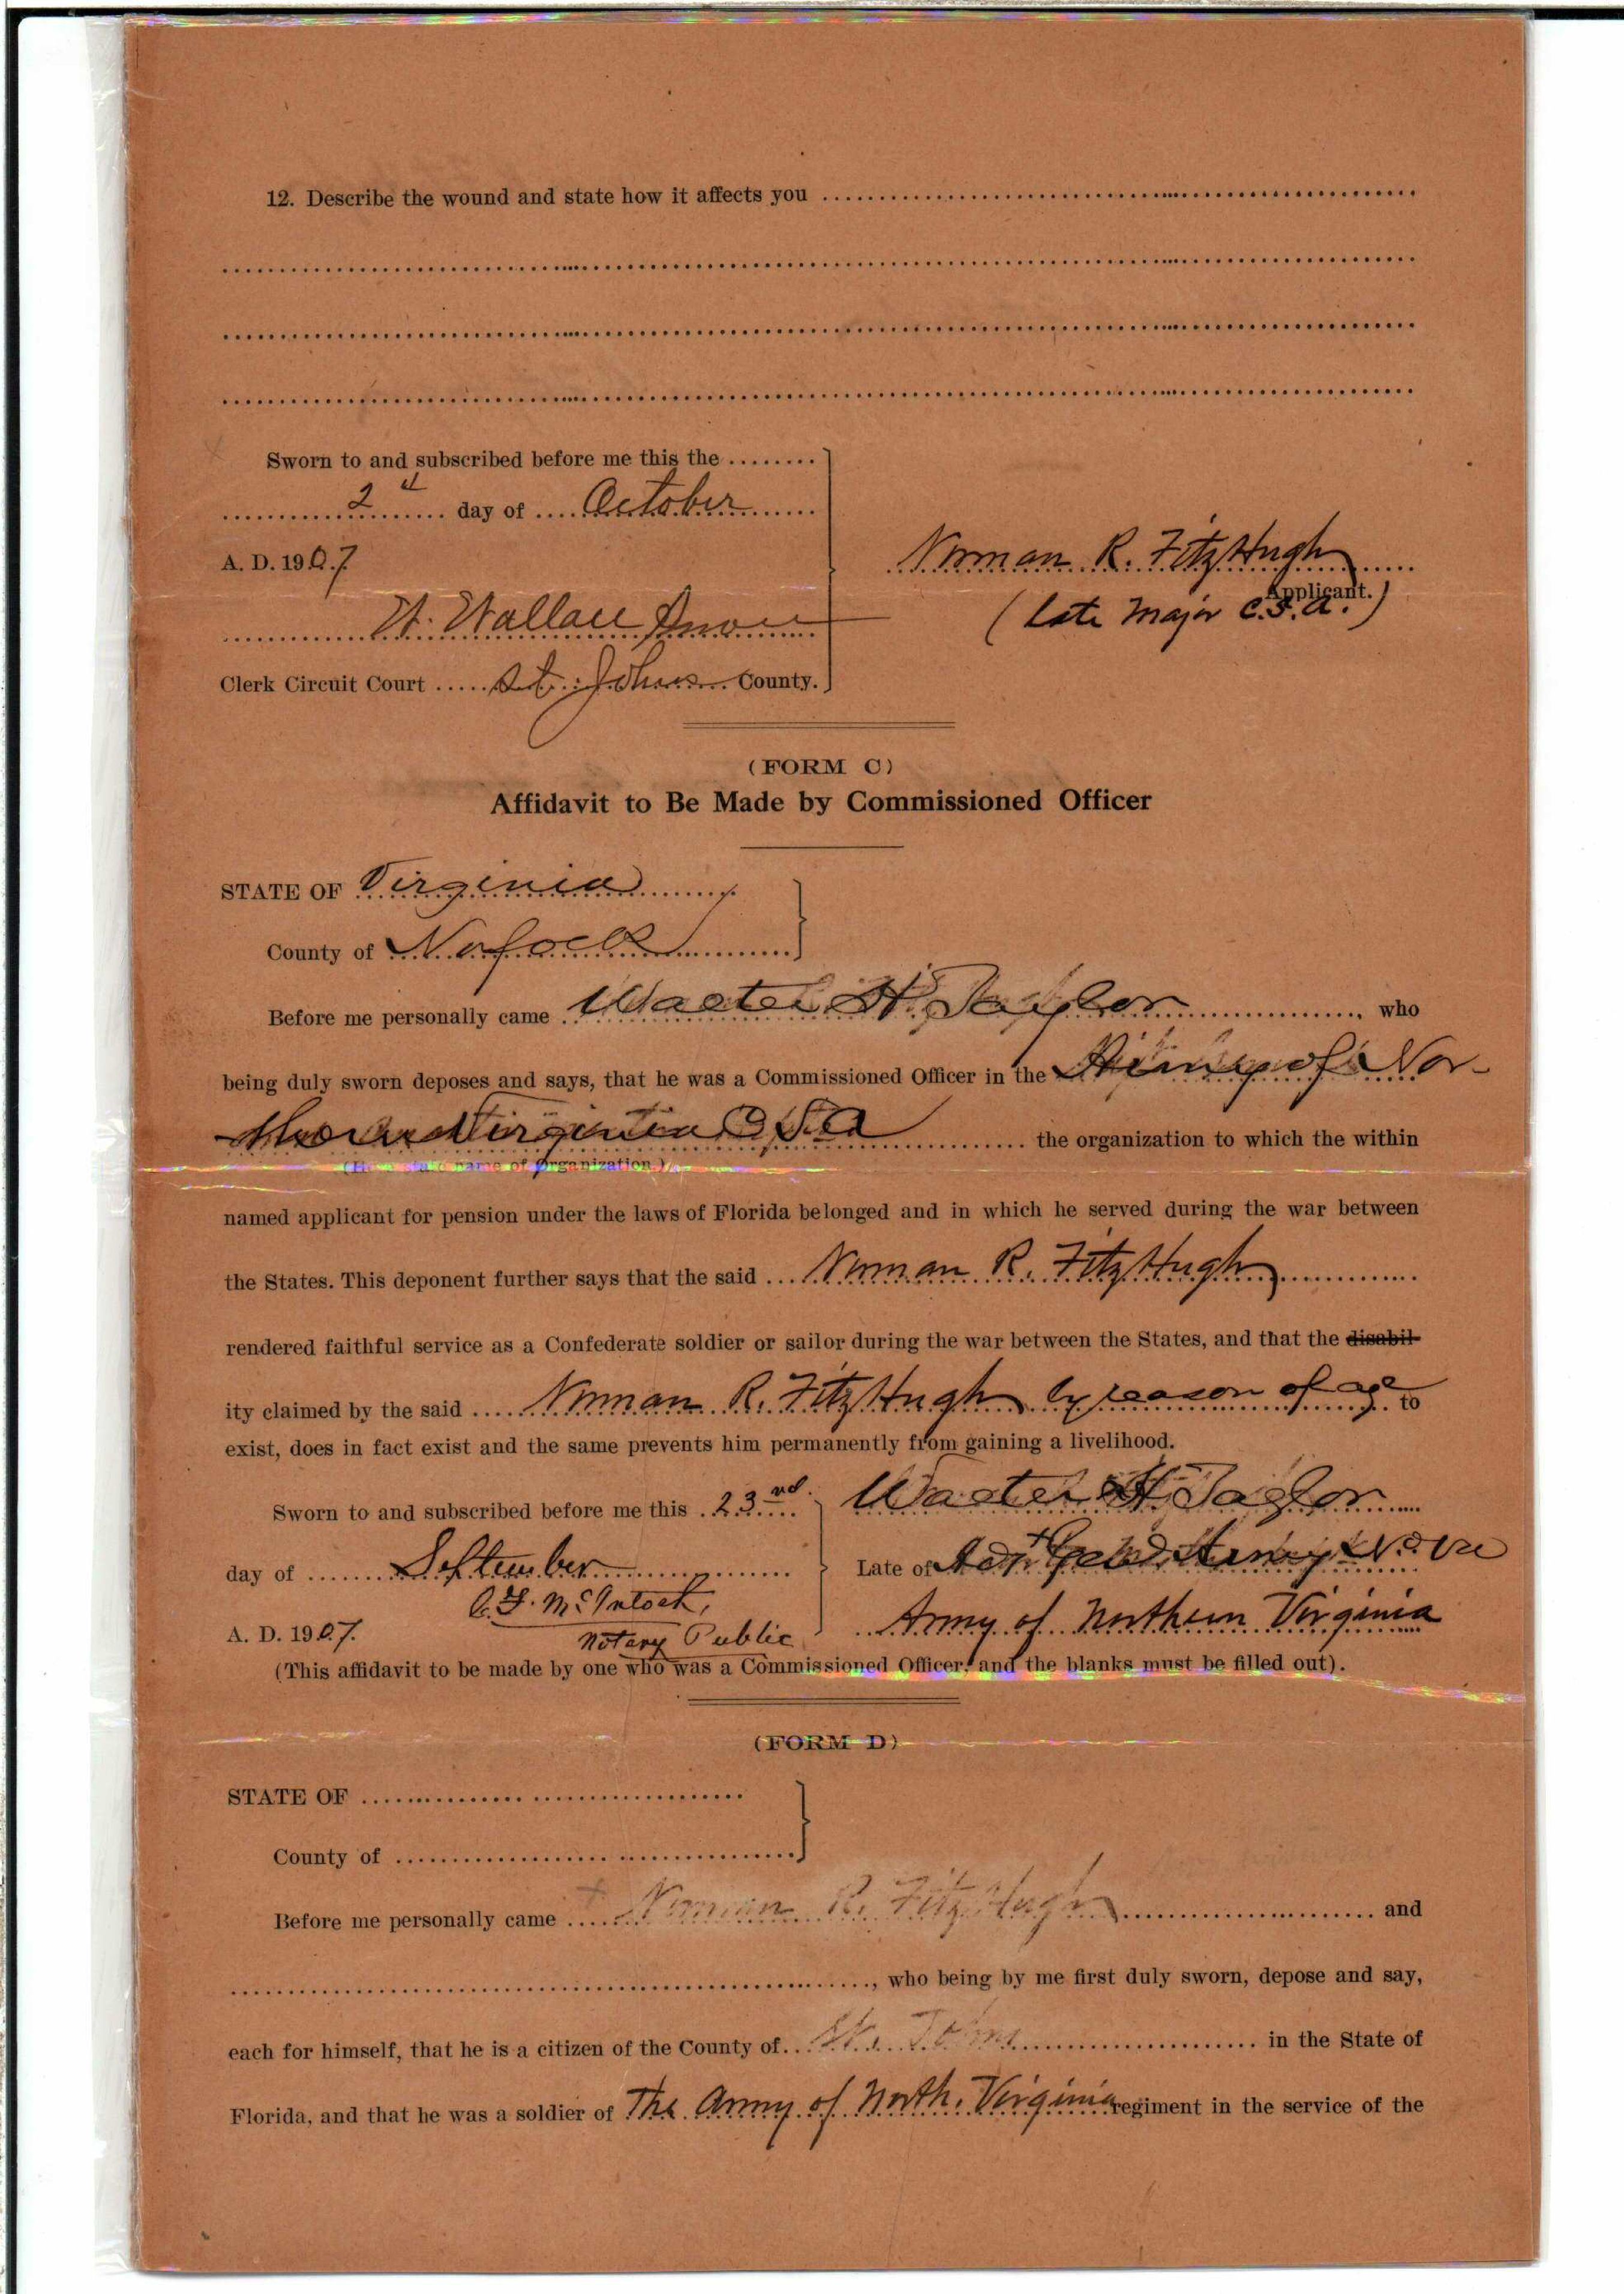 12. Describe the wound and state how it affects you
Sworn to and subscribed before me this the
2d day of October
A. D. 1907
Norman R. FitzHugh
Applicant.
(Late Major C.S.A.)
W. Wallace Snow
Clerk Circuit Court St. Johns County.
(FORM C)
Affidavit to Be Made by Commissioned Officer
STATE OF Virginia
County of Norfolk
Before me personally came Walter H. Taylor who
being duly sworn deposes and says, that he was a Commissioned Officer in the Army of Nor-
thern Virginia C S A the organization to which the within
name of Organization.)
named applicant for pension under the laws of Florida belonged and in which he served during the war between
the States. This deponent further says that the said Norman R. FitzHugh
rendered faithful service as a Confederate soldier or sailor during the war between the States, and that the disabil-
ity claimed by the said Norman R. FitzHugh by reason of age to
exist, does in fact exist and the same prevents him permanently from gaining a livelihood.
Sworn to and subscribed before me this 23rd Walter H. Taylor
day of September Late of Adjt Genl Army No Va
C. F. McIntosh,
A. D. 1907. Notary Public Army of Northern Virginia
(This affidavit to be made by one who was a Commissioned Officer, and the blanks must be filled out).
(FORM D)
STATE OF
County of
Before me personally came Norman R. FitzHugh and
, who being by me first duly sworn, depose and say,
each for himself, that he is a citizen of the County of St. Johns in the State of
Florida, and that he was a soldier of The Army of North. Virginia regiment in the service of the